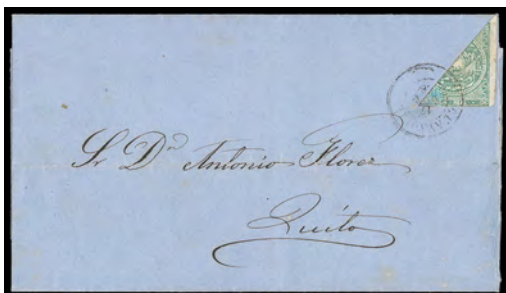 Sr Dn Antonio Flores
Quito